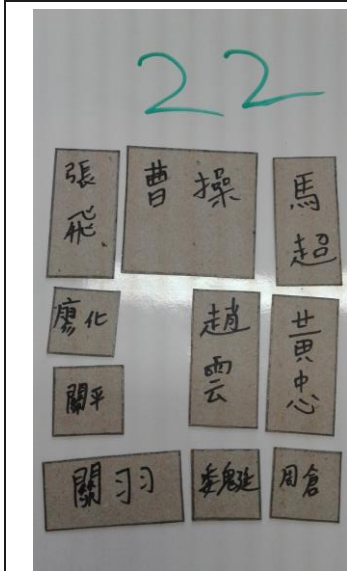 22
張飛
曹操
馬超
廖化
趙雲
黃忠
關平
關羽
魏延
周倉